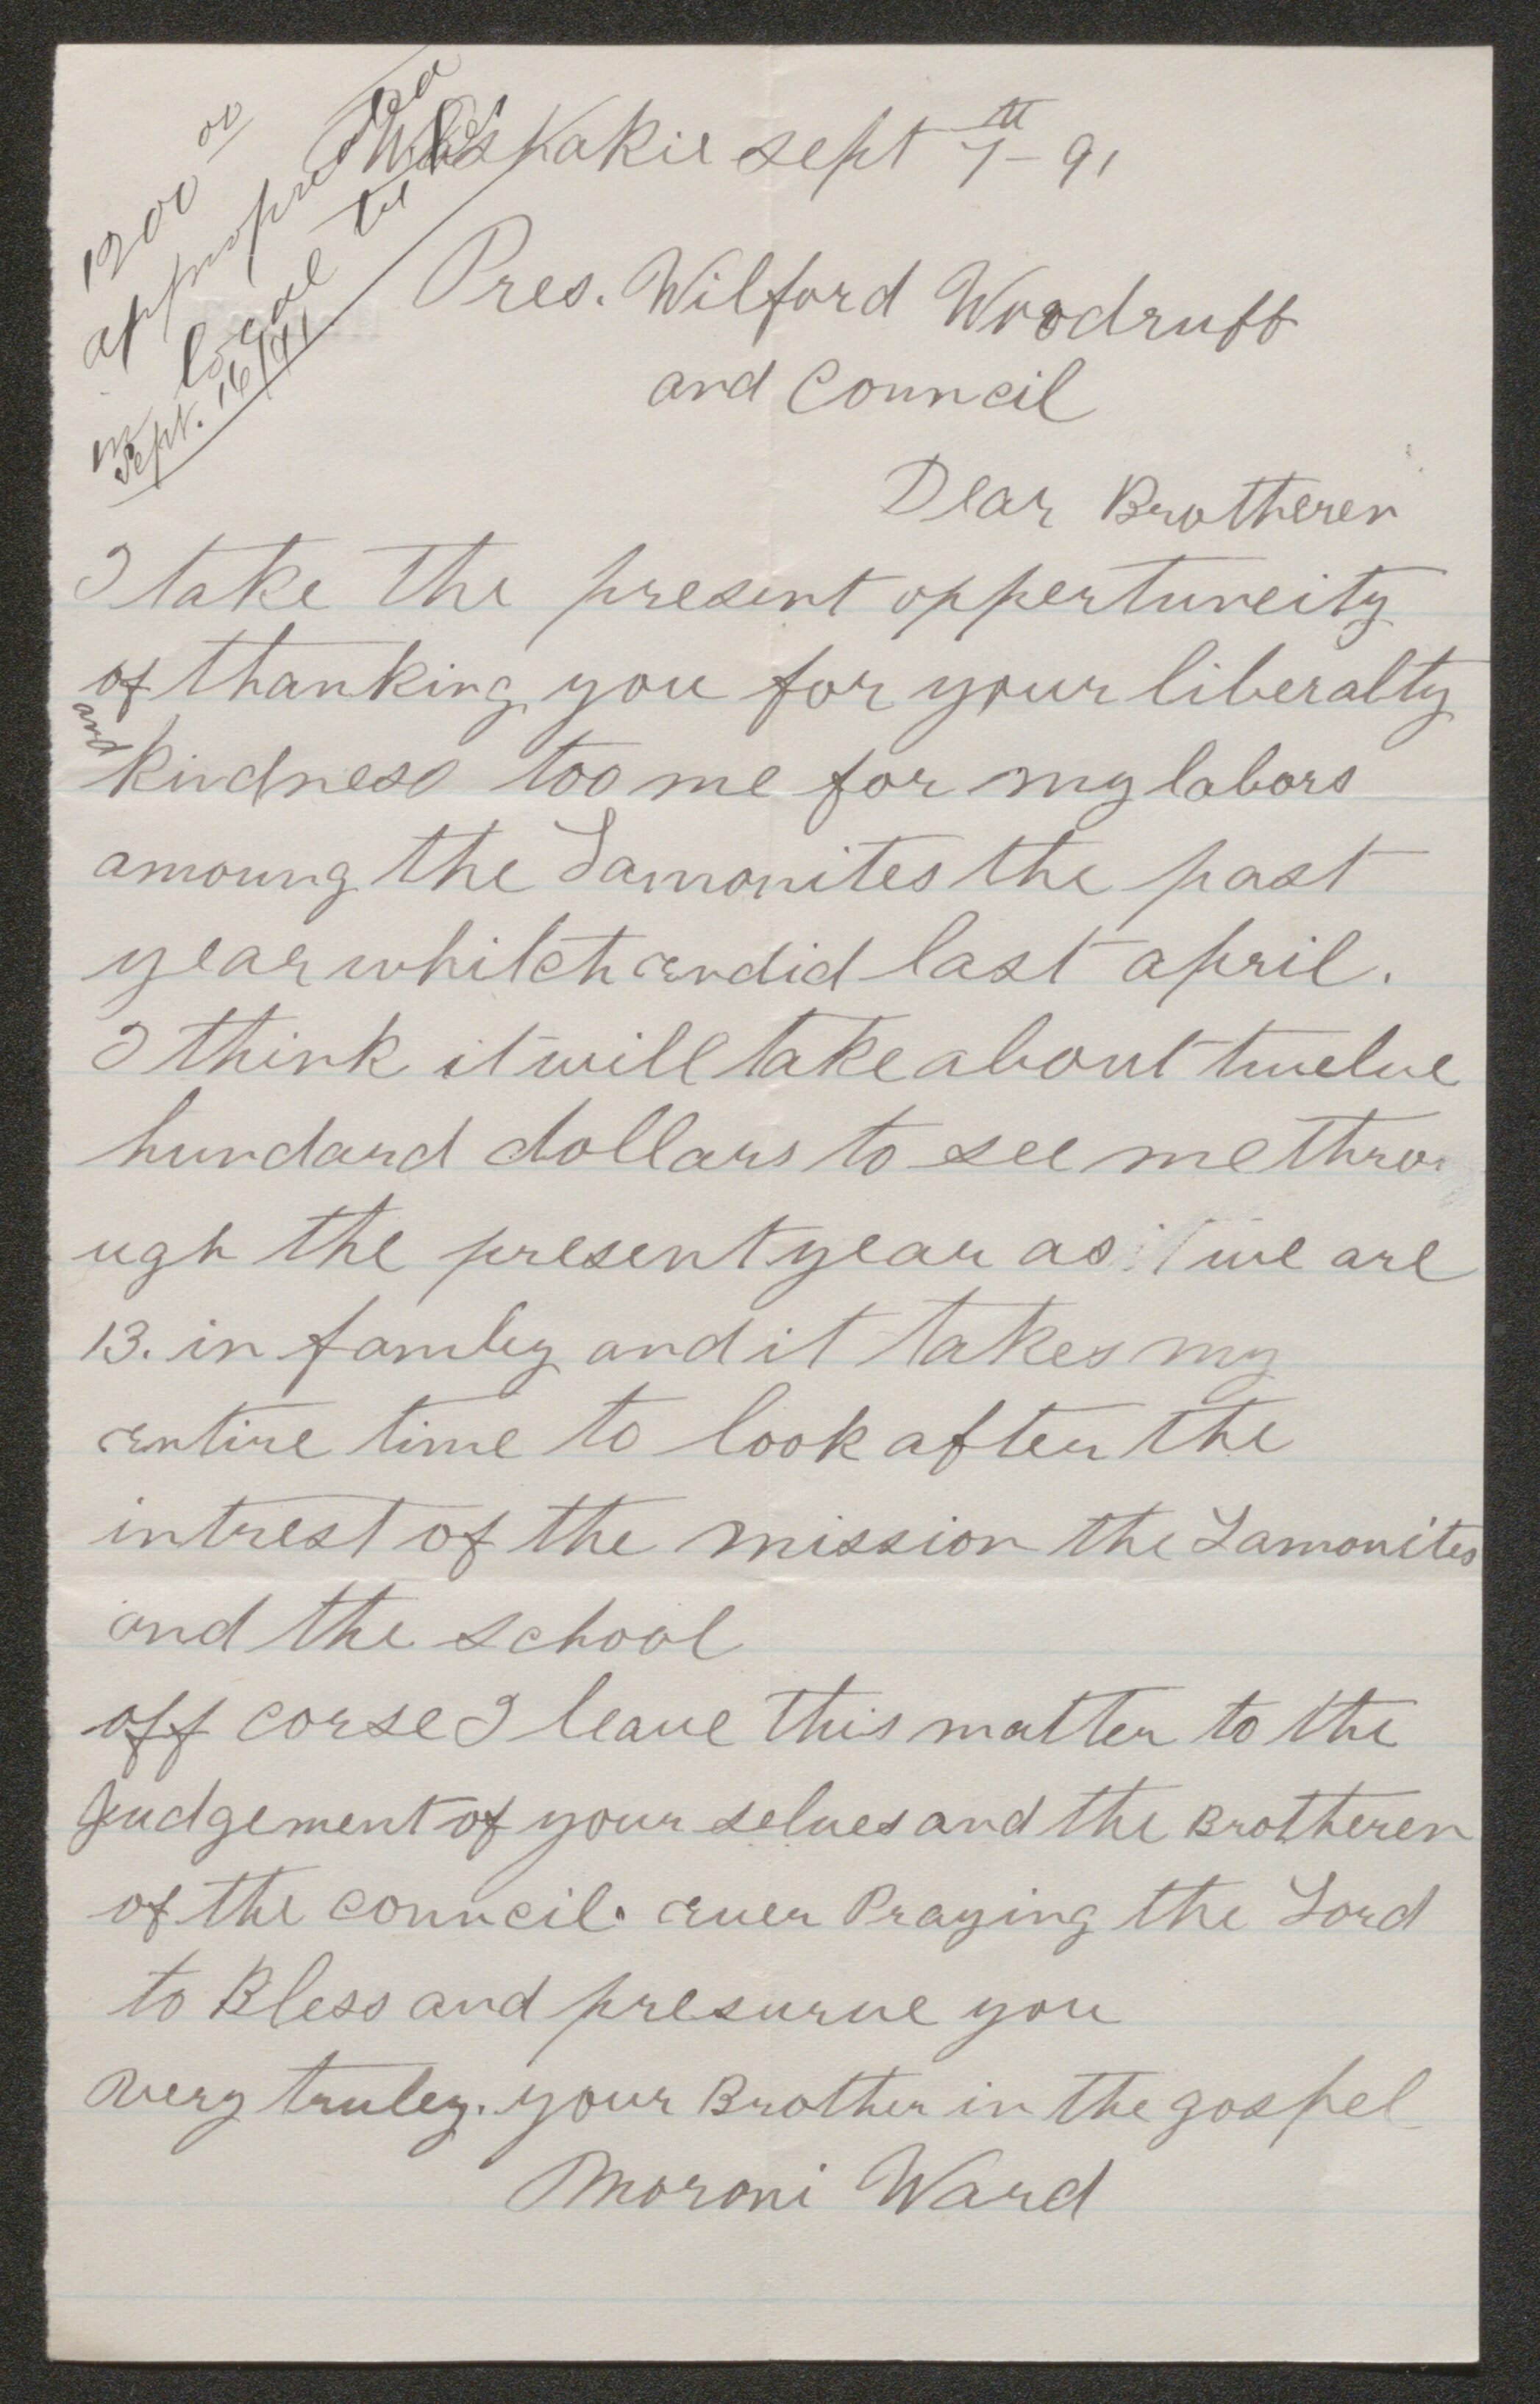 1200 00
appropriated
in local
Sept. 16/91
Waskakie sept 7th - 91
Pres. Wilford Woodruff
and Council
Dear Brotheren
I take the present oppertuneity
of thanking you for your liberalty
and kindness too me for my labors
amoung the Lamonites the past
year whitch endid last april.
I think it will take about twelve
hundard dollars to see me thro
ugh the present year as we are
13. in famley and it takes my
entire time to look after the
intrest of the mission the Lamonites
and the school
off corse I leave this matter to the
Judgement of your selves and the Brotheren
of the council. ever Praying the Lord
to Bless and presurve you
very truley. your Brother in the gospel
Moroni Ward